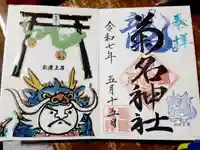 奉拝
菊名神社
令和七年
五月十五日